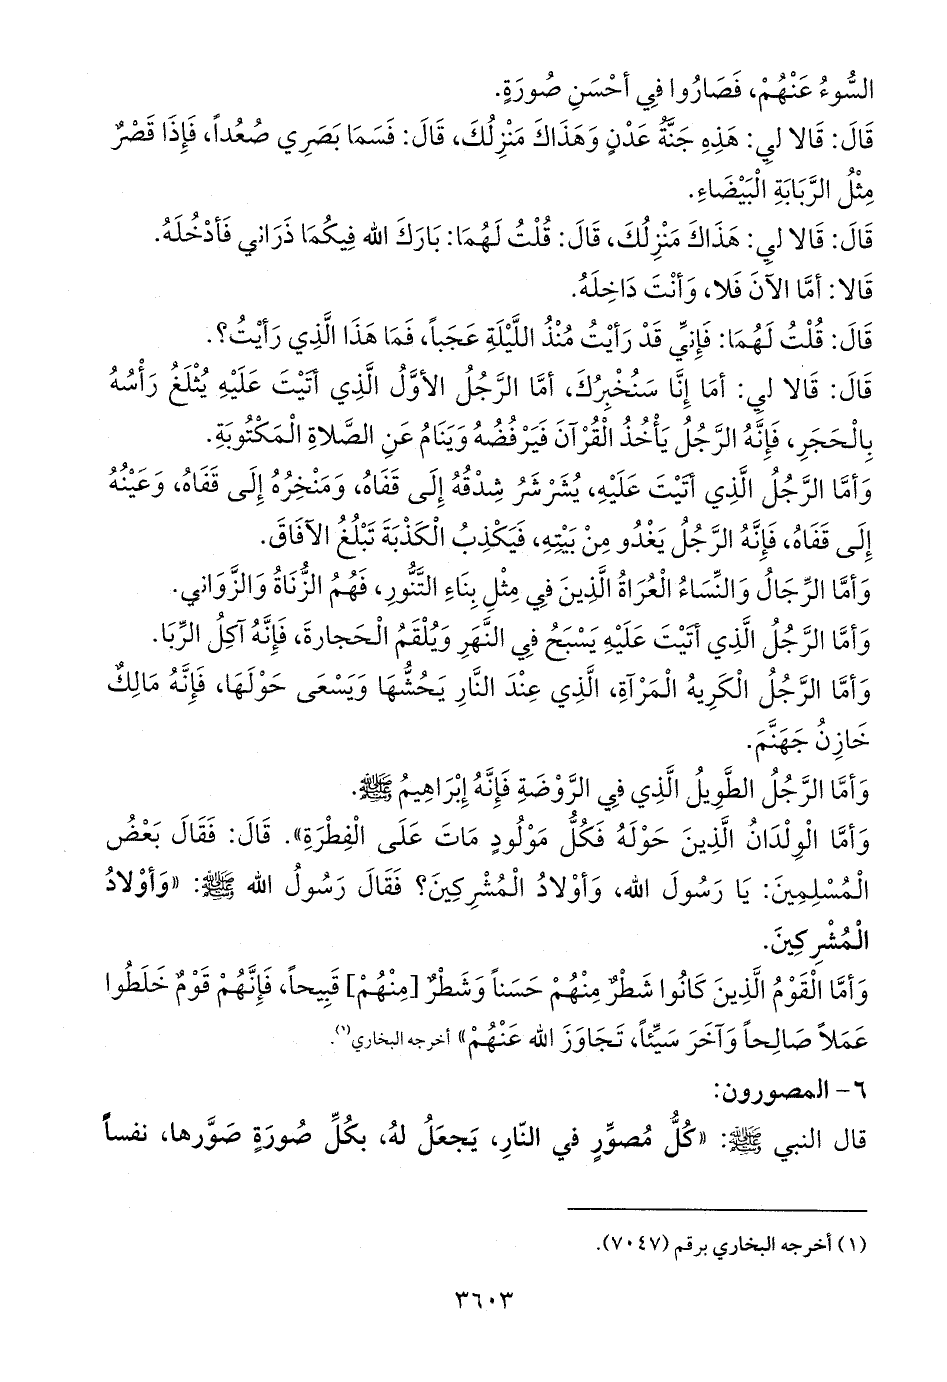 السُّوءُ عَنْهُمْ، فَصَارُوا فِي أَحْسَنِ صُورَةٍ.
قَالَ: قَالا لِي: هَذِهِ جَنَّةُ عَدْنٍ وَهَذَاكَ مَنْزِلُكَ، قَالَ: فَسَمَا بَصَرِي صُعُداً، فَإِذَا قَصْرٌ
مِثْلُ الرَّبَابَةِ الْبَيْضَاءِ.
قَالَ: قَالا لِي: هَذَاكَ مَنْزِلُكَ، قَالَ: قُلْتُ لَهُمَا: بَارَكَ الله فِيكُمَا ذَرَانِي فَأَدْخُلَهُ.
قَالا: أمَّا الآنَ فَلا، وَأنْتَ دَاخِلَهُ.
قَالَ: قُلْتُ لَهُمَا: فَإِنِّي قَدْ رَأيْتُ مُنْذُ اللَّيْلَةِ عَجَباً، فَمَا هَذَا الَّذِي رَأيْتُ؟.
قَالَ: قَالا لِي: أمَا إِنَّا سَنُخْبِرُكَ، أمَّا الرَّجُلُ الأوَّلُ الَّذِي أتَيْتَ عَلَيْهِ يُثْلَغُ رَأْسُهُ
بِالْحَجَرِ، فَإِنَّهُ الرَّجُلُ يَأْخُذُ الْقُرْآنَ فَيَرْفُضُهُ وَيَنَامُ عَنِ الصَّلاةِ الْمَكْتُوبَةِ.
وَأمَّا الرَّجُلُ الَّذِي أتَيْتَ عَلَيْهِ، يُشَرْشَرُ شِدْقُهُ إِلَى قَفَاهُ، وَمَنْخِرُهُ إِلَى قَفَاهُ، وَعَيْنُهُ
إِلَى قَفَاهُ، فَإِنَّهُ الرَّجُلُ يَغْدُو مِنْ بَيْتِهِ، فَيَكْذِبُ الْكَذْبَةَ تَبْلُغُ الآفَاقَ.
وَأمَّا الرِّجَالُ وَالنِّسَاءُ الْعُرَاةُ الَّذِينَ فِي مِثْلِ بِنَاءِ التَّنُّورِ، فَهُمُ الزُّنَاةُ وَالزَّوَانِي.
وَأمَّا الرَّجُلُ الَّذِي أتَيْتَ عَلَيْهِ يَسْبَحُ فِي النَّهَرِ وَيُلْقَمُ الْحَجارةَ، فَإِنَّهُ آكِلُ الرِّبَا.
وَأمَّا الرَّجُلُ الْكَرِيهُ الْمَرْآةِ، الَّذِي عِنْدَ النَّارِ يَحُشُّهَا وَيَسْعَى حَوْلَهَا، فَإِنَّهُ مَالِكٌ
خَازِنُ جَهَنَّمَ.
وَأمَّا الرَّجُلُ الطَّوِيلُ الَّذِي فِي الرَّوْضَةِ فَإِنَّهُ إِبْرَاهِيمُ ﷺ.
وَأمَّا الْوِلْدَانُ الَّذِينَ حَوْلَهُ فَكُلُّ مَوْلُودٍ مَاتَ عَلَى الْفِطْرَةِ». قَالَ: فَقَالَ بَعْضُ
الْمُسْلِمِينَ: يَا رَسُولَ الله، وَأوْلادُ الْمُشْرِكِينَ؟ فَقَالَ رَسُولُ الله ﷺ: «وَأوْلادُ
الْمُشْرِكِينَ.
وَأمَّا الْقَوْمُ الَّذِينَ كَانُوا شَطْرٌ مِنْهُمْ حَسَناً وَشَطْرٌ [مِنْهُمْ] قَبِيحاً، فَإِنَّهُمْ قَوْمٌ خَلَطُوا
عَمَلاً صَالِحاً وَآخَرَ سَيِّئاً، تَجَاوَزَ الله عَنْهُمْ» أخرجه البخاري(١).
٦- المصورون:
قال النبي ﷺ: «كُلُّ مُصوِّرٍ في النّارِ، يَجعَلُ لهُ، بكُلِّ صُورَةٍ صَوَّرها، نفساً
(١) أخرجه البخاري برقم (٧٠٤٧).
٣٦٠٣